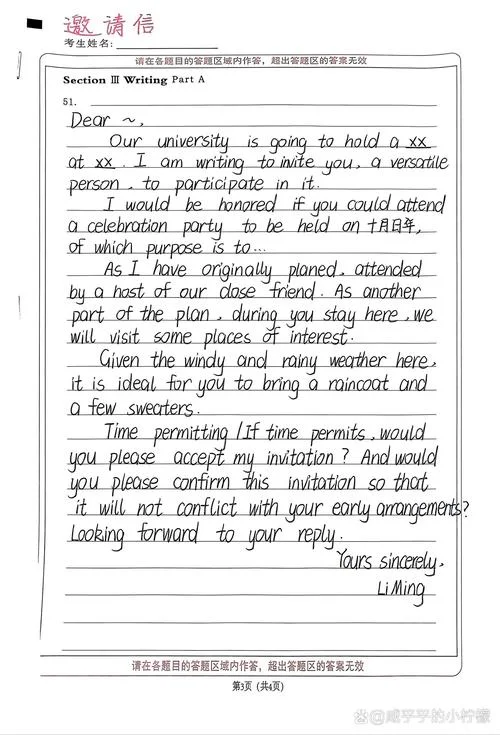 邀请信
考生姓名:
请在各题目的答题区域内作答，超出答题区的答案无效
Section Ⅲ Writing Part A
51.
Dear ~,
Our university is going to hold a xx
at xx. I am writing to invite you, a versatile
person, to participate in it.
I would be honored if you could attend
a celebration party to be held on 十月日年,
of which purpose is to...
As I have originally planed, attended
by a host of our close friend. As another
part of the plan, during you stay here, we
will visit some places of interest.
Given the windy and rainy weather here,
it is ideal for you to bring a raincoat and
a few sweaters.
Time permitting / If time permits, would
you please accept my invitation? And would
you please confirm this invitation so that
it will not conflict with your early arrangements?
Looking forward to your reply.
Yours sincerely,
Li Ming
请在各题目的答题区域内作答，超出答题区的答案无效
第3页 (共4页)
@咸乎乎的小柠檬